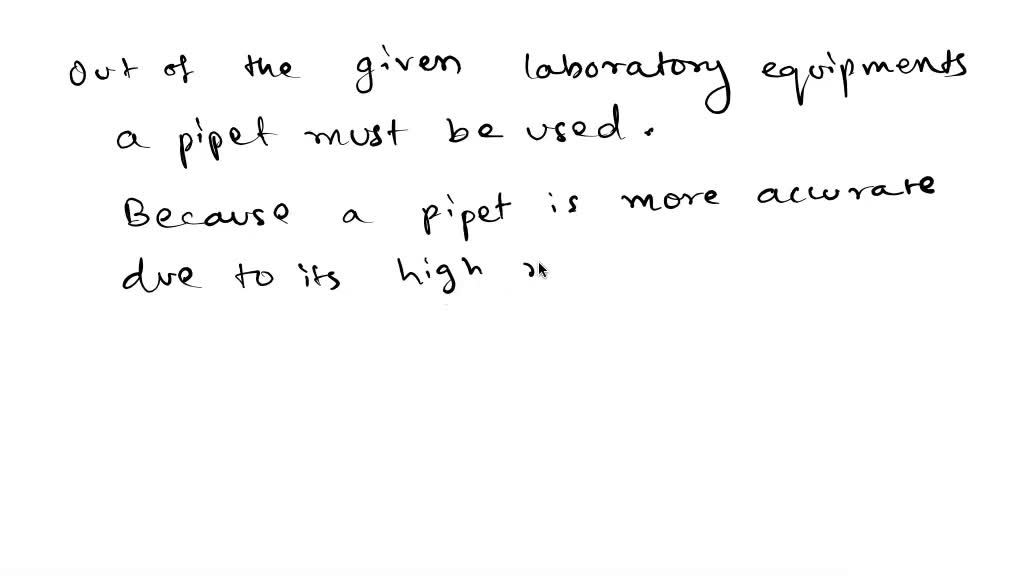 Out of the given laboratory equipments
a pipet must be used.
Because a pipet is more accurate
due to its high